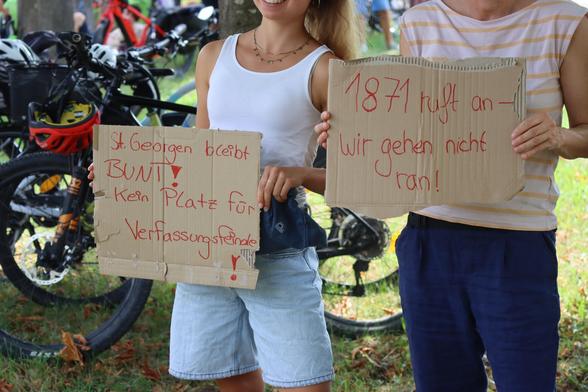 St. Georgen bleibt
BUNT!
Kein Platz für
Verfassungsfeinde
!
1871 ruft an –
wir gehen nicht
ran!